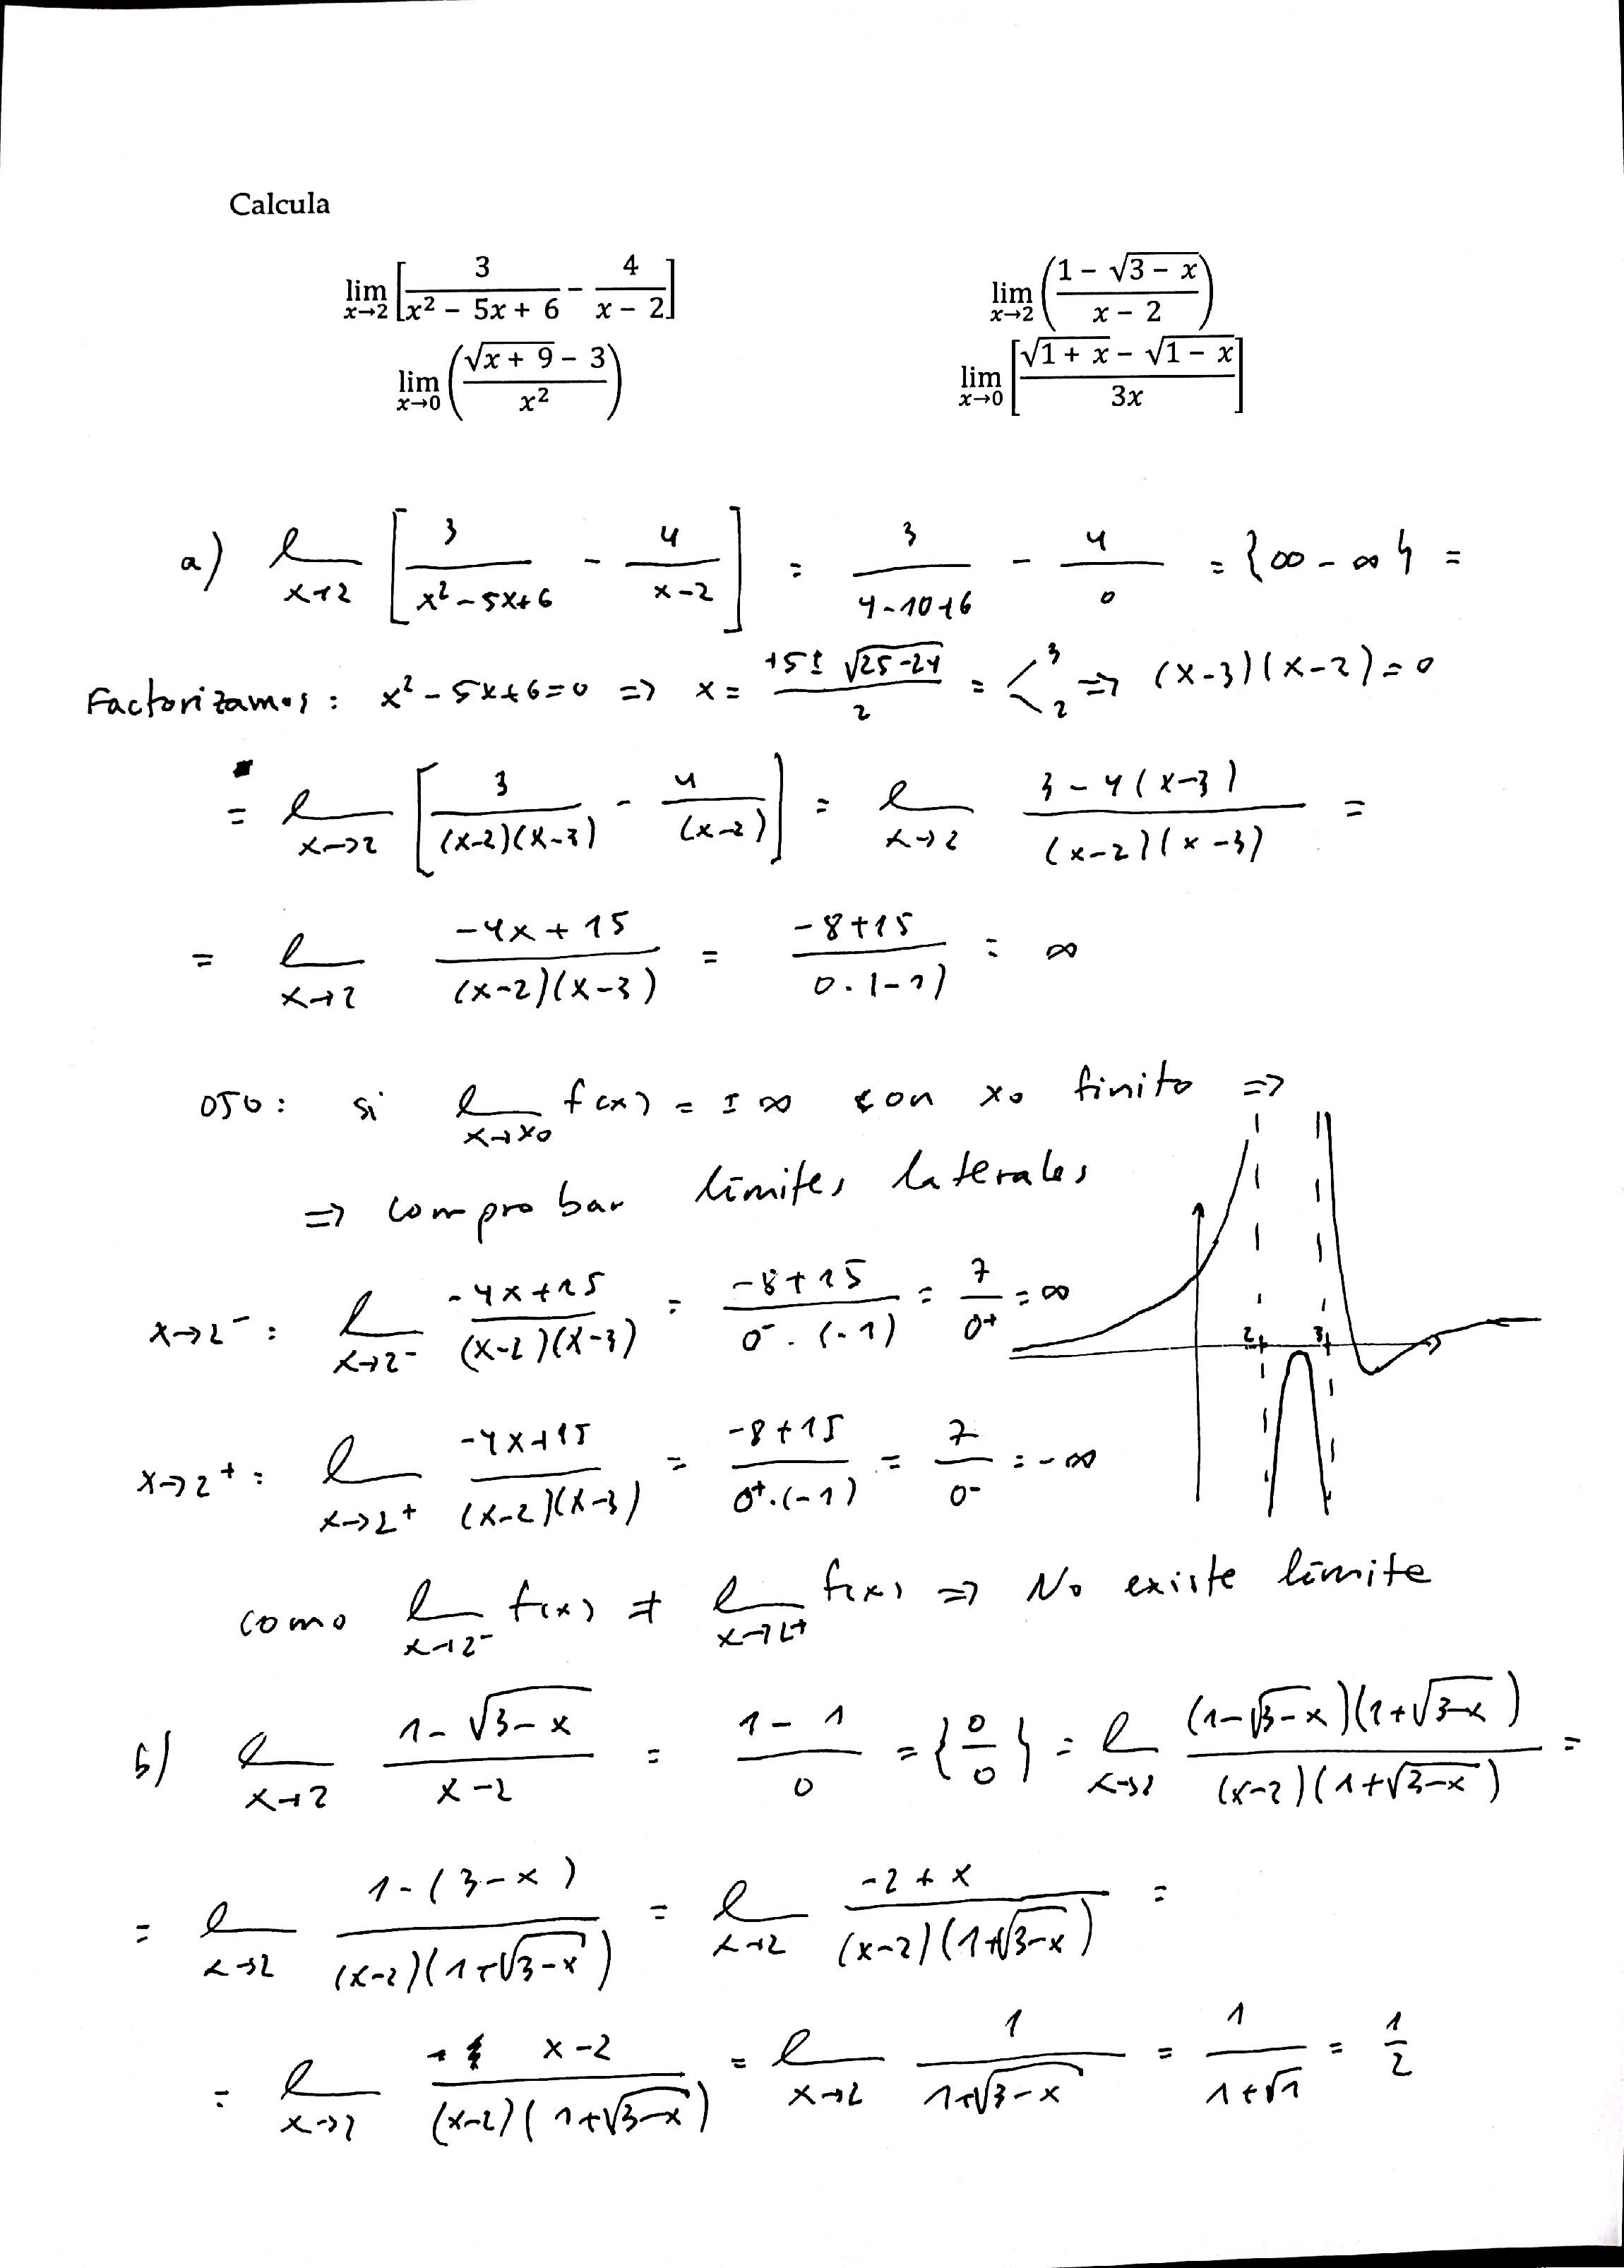 Calcula
lim x→2 [3/(x² − 5x + 6) − 4/(x − 2)]    lim x→2 ((1 − √(3 − x))/(x − 2))
lim x→0 ((√(x + 9) − 3)/x²)    lim x→0 [(√(1 + x) − √(1 − x))/(3x)]
a) l x→2 [3/(x²−5x+6) − 4/(x−2)] = 3/(4−10+6) − 4/0 = {∞−∞} =
Factorizamos: x²−5x+6=0 => x = (+5±√(25−24))/2 = < 3 2 => (x−3)(x−2)=0
= l x→2 [3/((x−2)(x−3)) − 4/(x−2)] = l x→2 (3−4(x−3))/((x−2)(x−3)) =
= l x→2 (−4x+15)/((x−2)(x−3)) = (−8+15)/(0·(−1)) = ∞
OJO: si l x→x₀ f(x) = ±∞ con x₀ finito =>
=> comprobar límites laterales
x→2⁻: l x→2⁻ (−4x+15)/((x−2)(x−3)) = (−8+15)/(0⁻·(−1)) = 7/0⁺ = ∞
2 3
x→2⁺: l x→2⁺ (−4x+15)/((x−2)(x−3)) = (−8+15)/(0⁺·(−1)) = 7/0⁻ = −∞
como l x→2⁻ f(x) ≠ l x→2⁺ f(x) => No existe límite
b) l x→2 (1−√(3−x))/(x−2) = (1−1)/0 = {0/0} = l x→2 ((1−√(3−x))(1+√(3−x)))/((x−2)(1+√(3−x))) =
= l x→2 (1−(3−x))/((x−2)(1+√(3−x))) = l x→2 (−2+x)/((x−2)(1+√(3−x))) =
= l x→2 (x−2)/((x−2)(1+√(3−x))) = l x→2 1/(1+√(3−x)) = 1/(1+√1) = 1/2